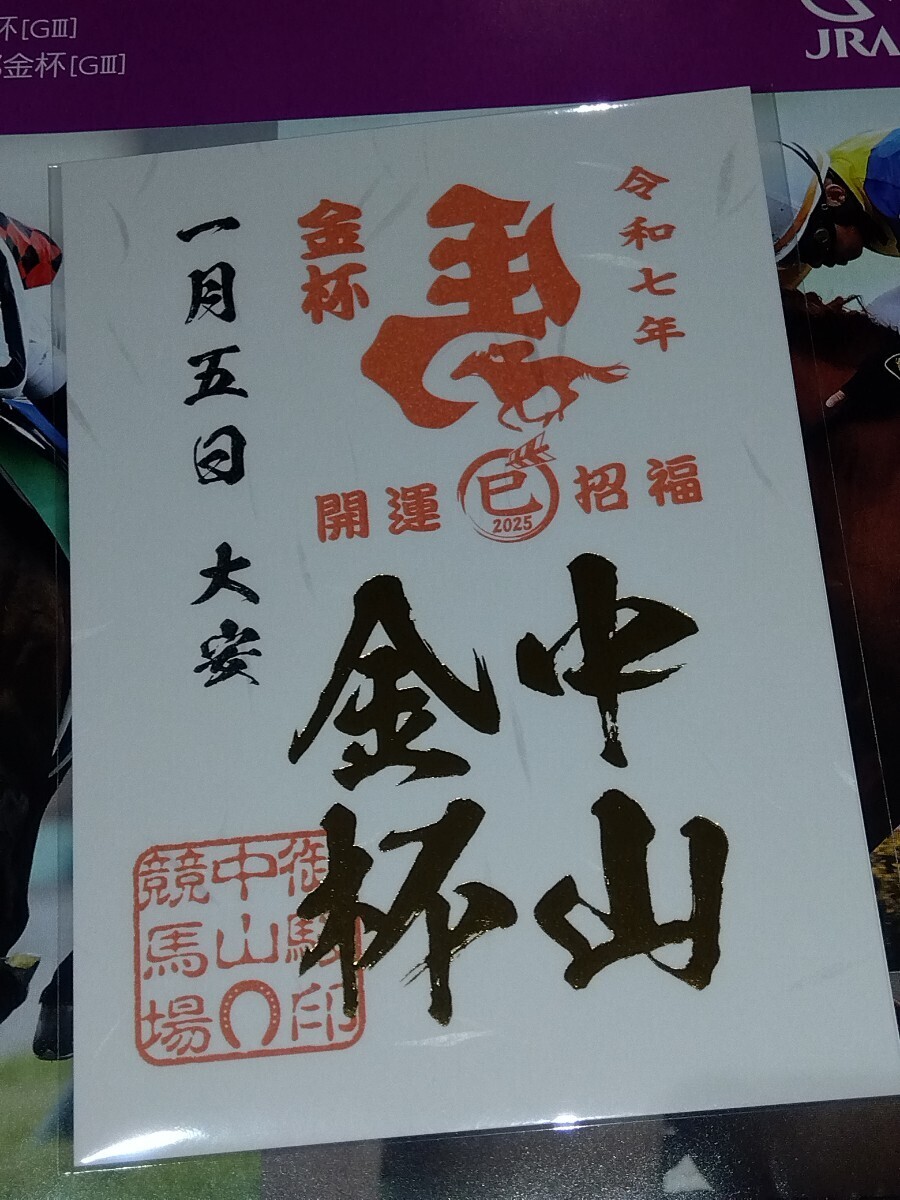 杯[GⅢ]
金杯[GⅢ]
JRA
令和七年
馬
金杯
一月五日 大安
開運 巳 招福
2025
中山
金杯
御駿印
中山
競馬場